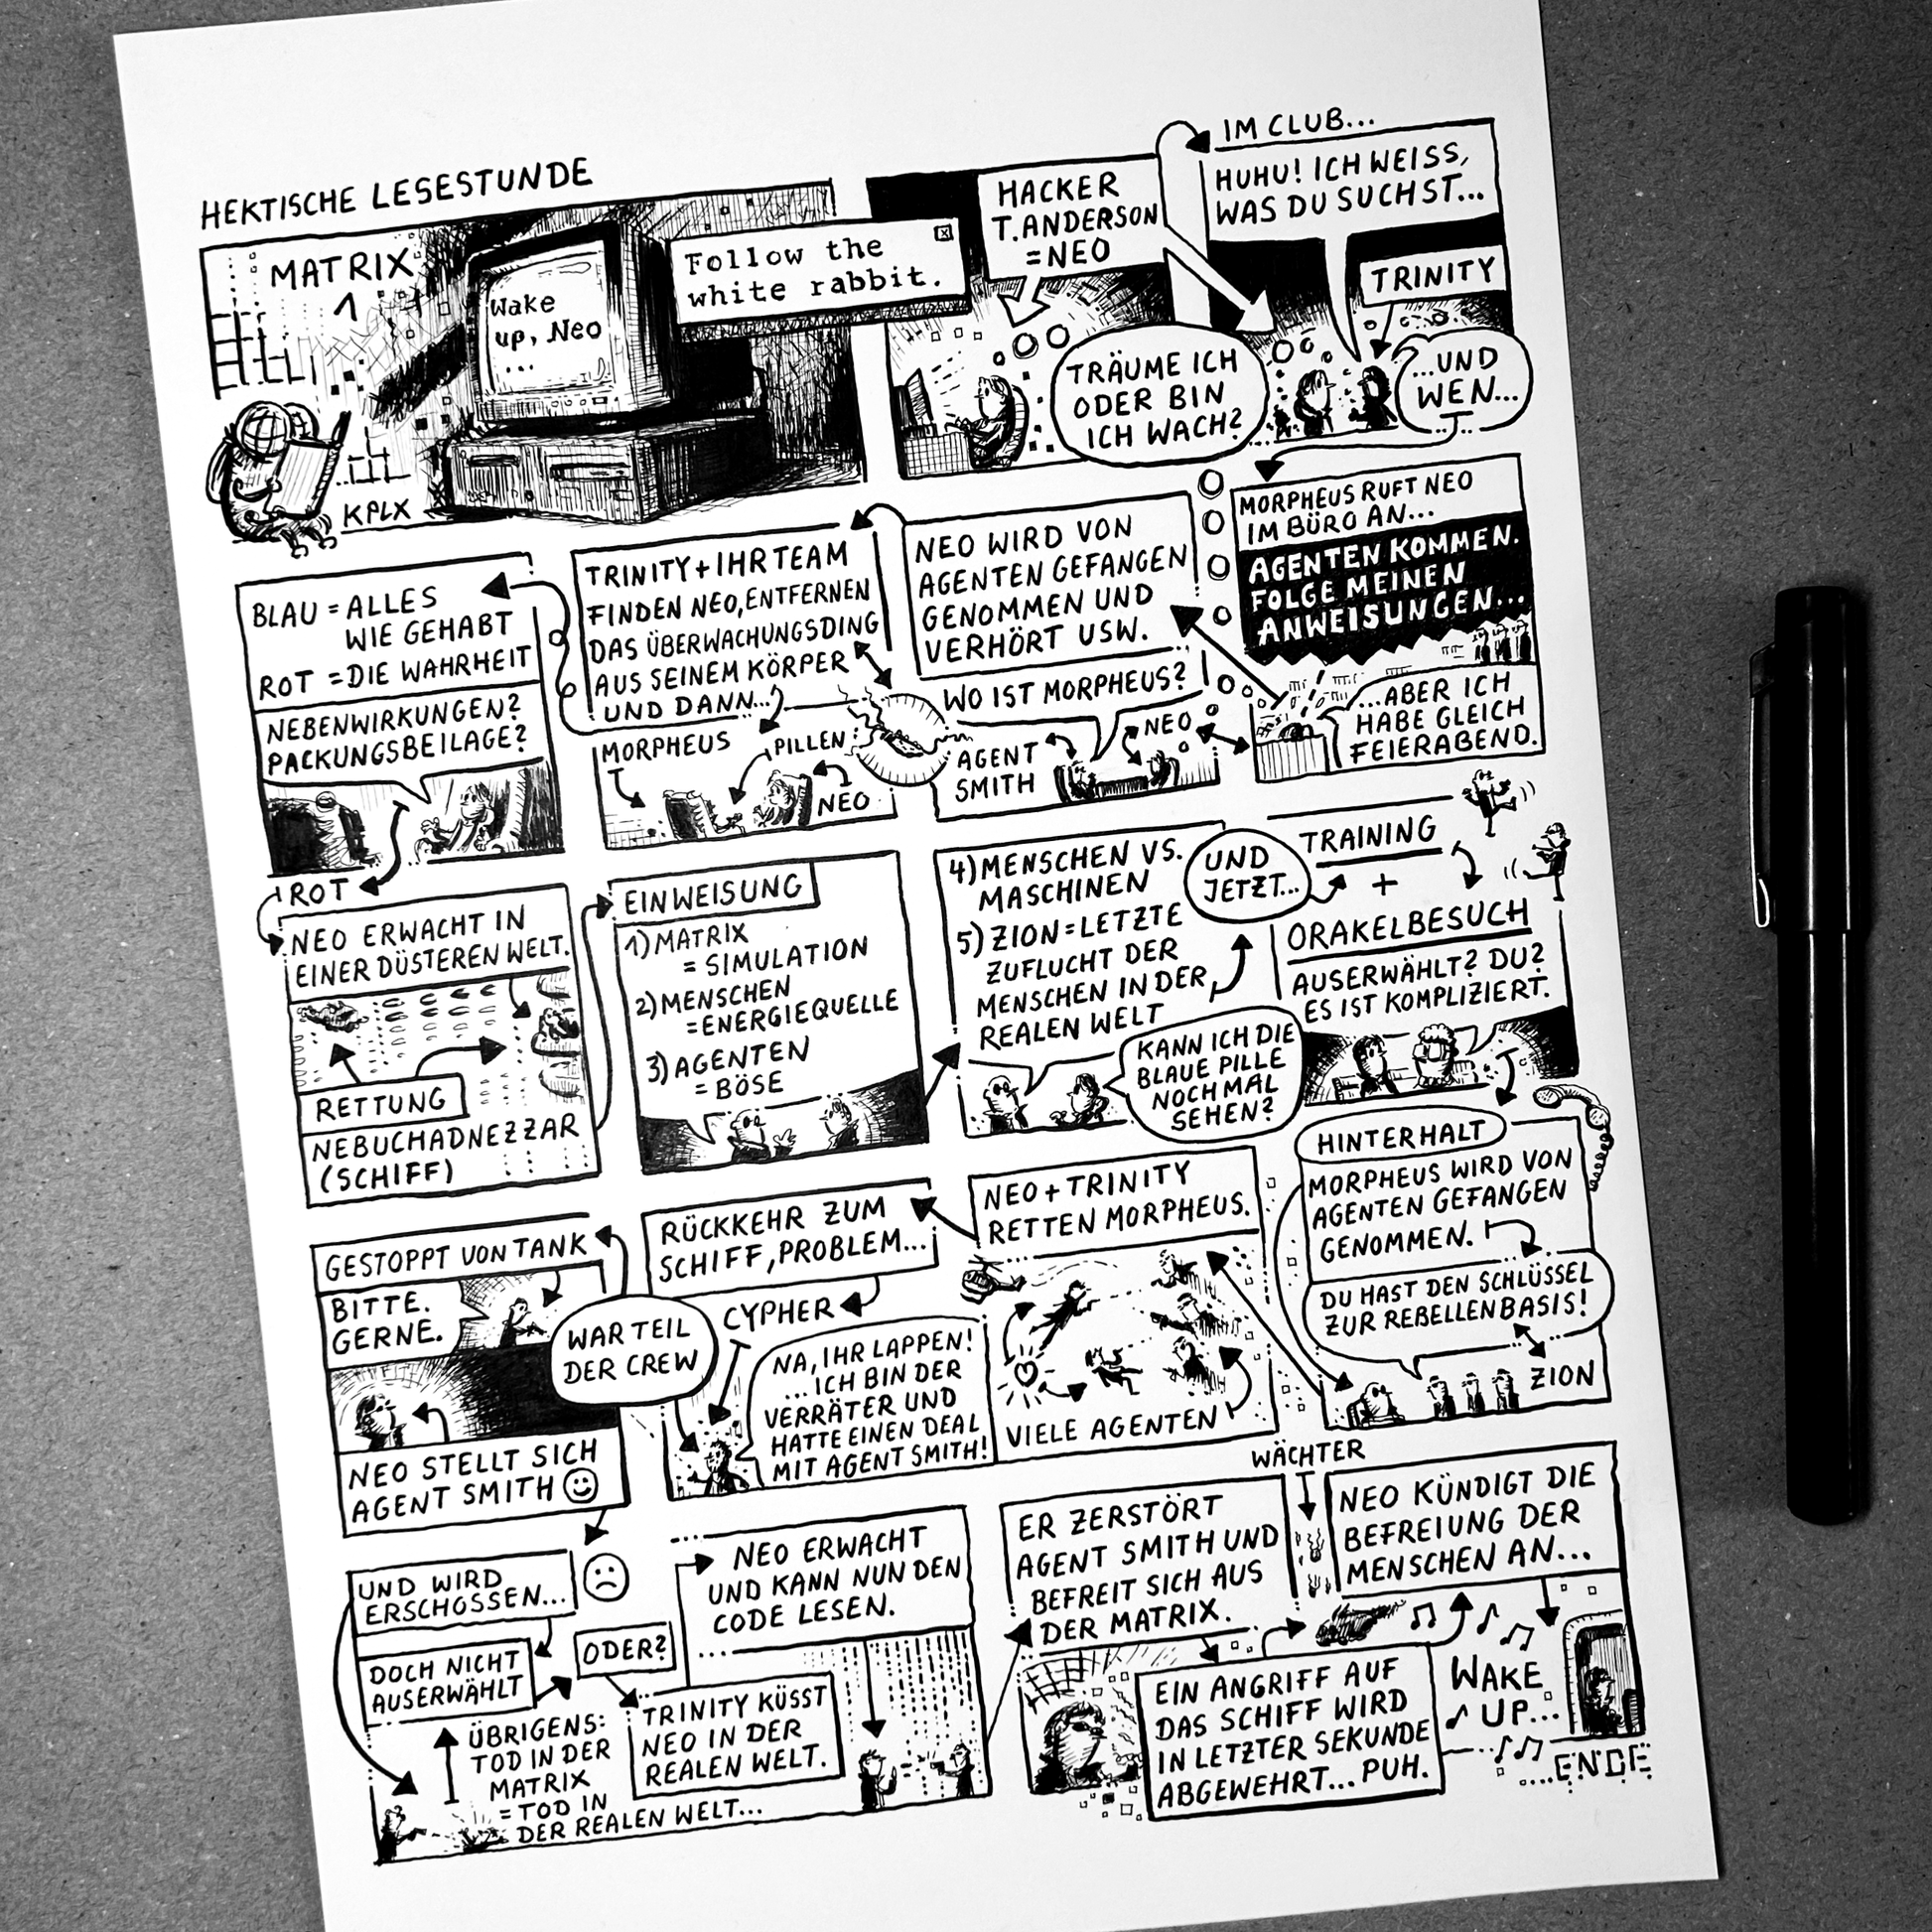 HEKTISCHE LESESTUNDE
MATRIX
1
KPLX
Wake
up, Neo
...
Follow the
white rabbit.
HACKER
T. ANDERSON
= NEO
TRÄUME ICH
ODER BIN
ICH WACH?
IM CLUB...
HUHU! ICH WEISS,
WAS DU SUCHST...
TRINITY
...UND
WEN...
MORPHEUS RUFT NEO
IM BÜRO AN...
AGENTEN KOMMEN.
FOLGE MEINEN
ANWEISUNGEN...
...ABER ICH
HABE GLEICH
FEIERABEND.
NEO WIRD VON
AGENTEN GEFANGEN
GENOMMEN UND
VERHÖRT USW.
WO IST MORPHEUS?
NEO
AGENT
SMITH
TRINITY + IHR TEAM
FINDEN NEO, ENTFERNEN
DAS ÜBERWACHUNGSDING
AUS SEINEM KÖRPER
UND DANN...
MORPHEUS
PILLEN
NEO
BLAU = ALLES
WIE GEHABT
ROT = DIE WAHRHEIT
NEBENWIRKUNGEN?
PACKUNGSBEILAGE?
ROT
NEO ERWACHT IN
EINER DÜSTEREN WELT.
RETTUNG
NEBUCHADNEZZAR
(SCHIFF)
EINWEISUNG
1) MATRIX
= SIMULATION
2) MENSCHEN
= ENERGIEQUELLE
3) AGENTEN
= BÖSE
4) MENSCHEN VS.
MASCHINEN
5) ZION = LETZTE
ZUFLUCHT DER
MENSCHEN IN DER
REALEN WELT
KANN ICH DIE
BLAUE PILLE
NOCH MAL
SEHEN?
UND
JETZT...
TRAINING
+
ORAKELBESUCH
AUSERWÄHLT? DU?
ES IST KOMPLIZIERT.
HINTERHALT
MORPHEUS WIRD VON
AGENTEN GEFANGEN
GENOMMEN.
DU HAST DEN SCHLÜSSEL
ZUR REBELLENBASIS!
ZION
NEO + TRINITY
RETTEN MORPHEUS.
VIELE AGENTEN
RÜCKKEHR ZUM
SCHIFF, PROBLEM...
CYPHER
NA, IHR LAPPEN!
...ICH BIN DER
VERRÄTER UND
HATTE EINEN DEAL
MIT AGENT SMITH!
WAR TEIL
DER CREW
GESTOPPT VON TANK
BITTE.
GERNE.
NEO STELLT SICH
AGENT SMITH
UND WIRD
ERSCHOSSEN...
DOCH NICHT
AUSERWÄHLT
ÜBRIGENS:
TOD IN DER
MATRIX
= TOD IN
DER REALEN WELT...
ODER?
TRINITY KÜSST
NEO IN DER
REALEN WELT.
NEO ERWACHT
UND KANN NUN DEN
CODE LESEN.
ER ZERSTÖRT
AGENT SMITH UND
BEFREIT SICH AUS
DER MATRIX.
EIN ANGRIFF AUF
DAS SCHIFF WIRD
IN LETZTER SEKUNDE
ABGEWEHRT... PUH.
WÄCHTER
NEO KÜNDIGT DIE
BEFREIUNG DER
MENSCHEN AN...
WAKE
UP...
....ENDE